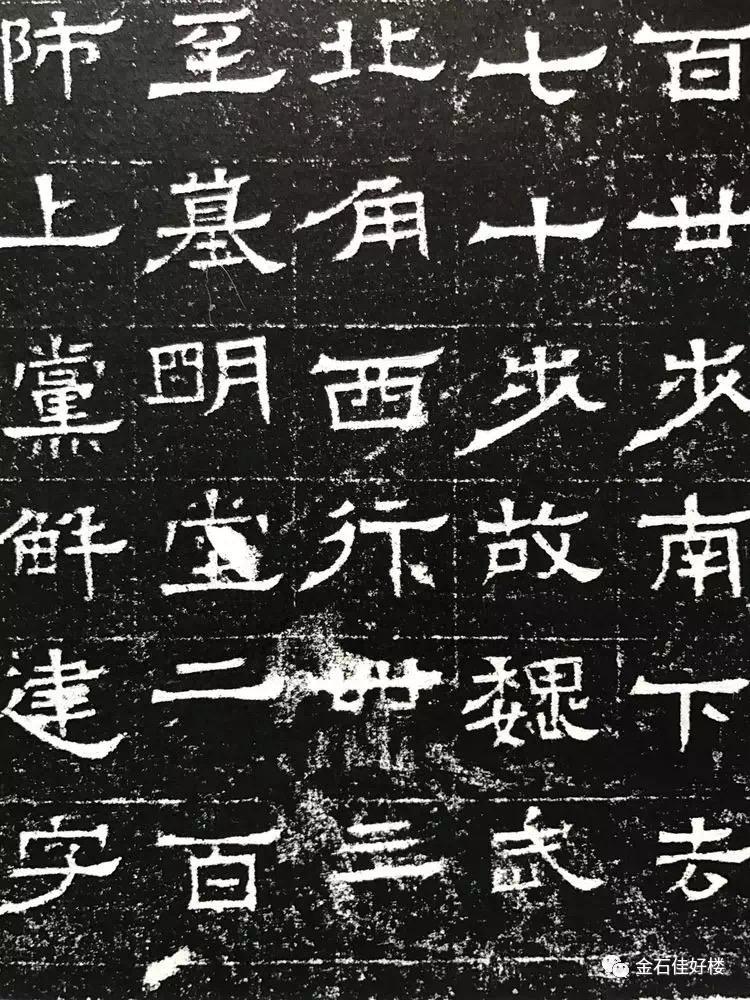 百廿步南下去
七十步故魏武
北角西行卌三
至墓明堂二百
師上黨解建字
金石佳好楼